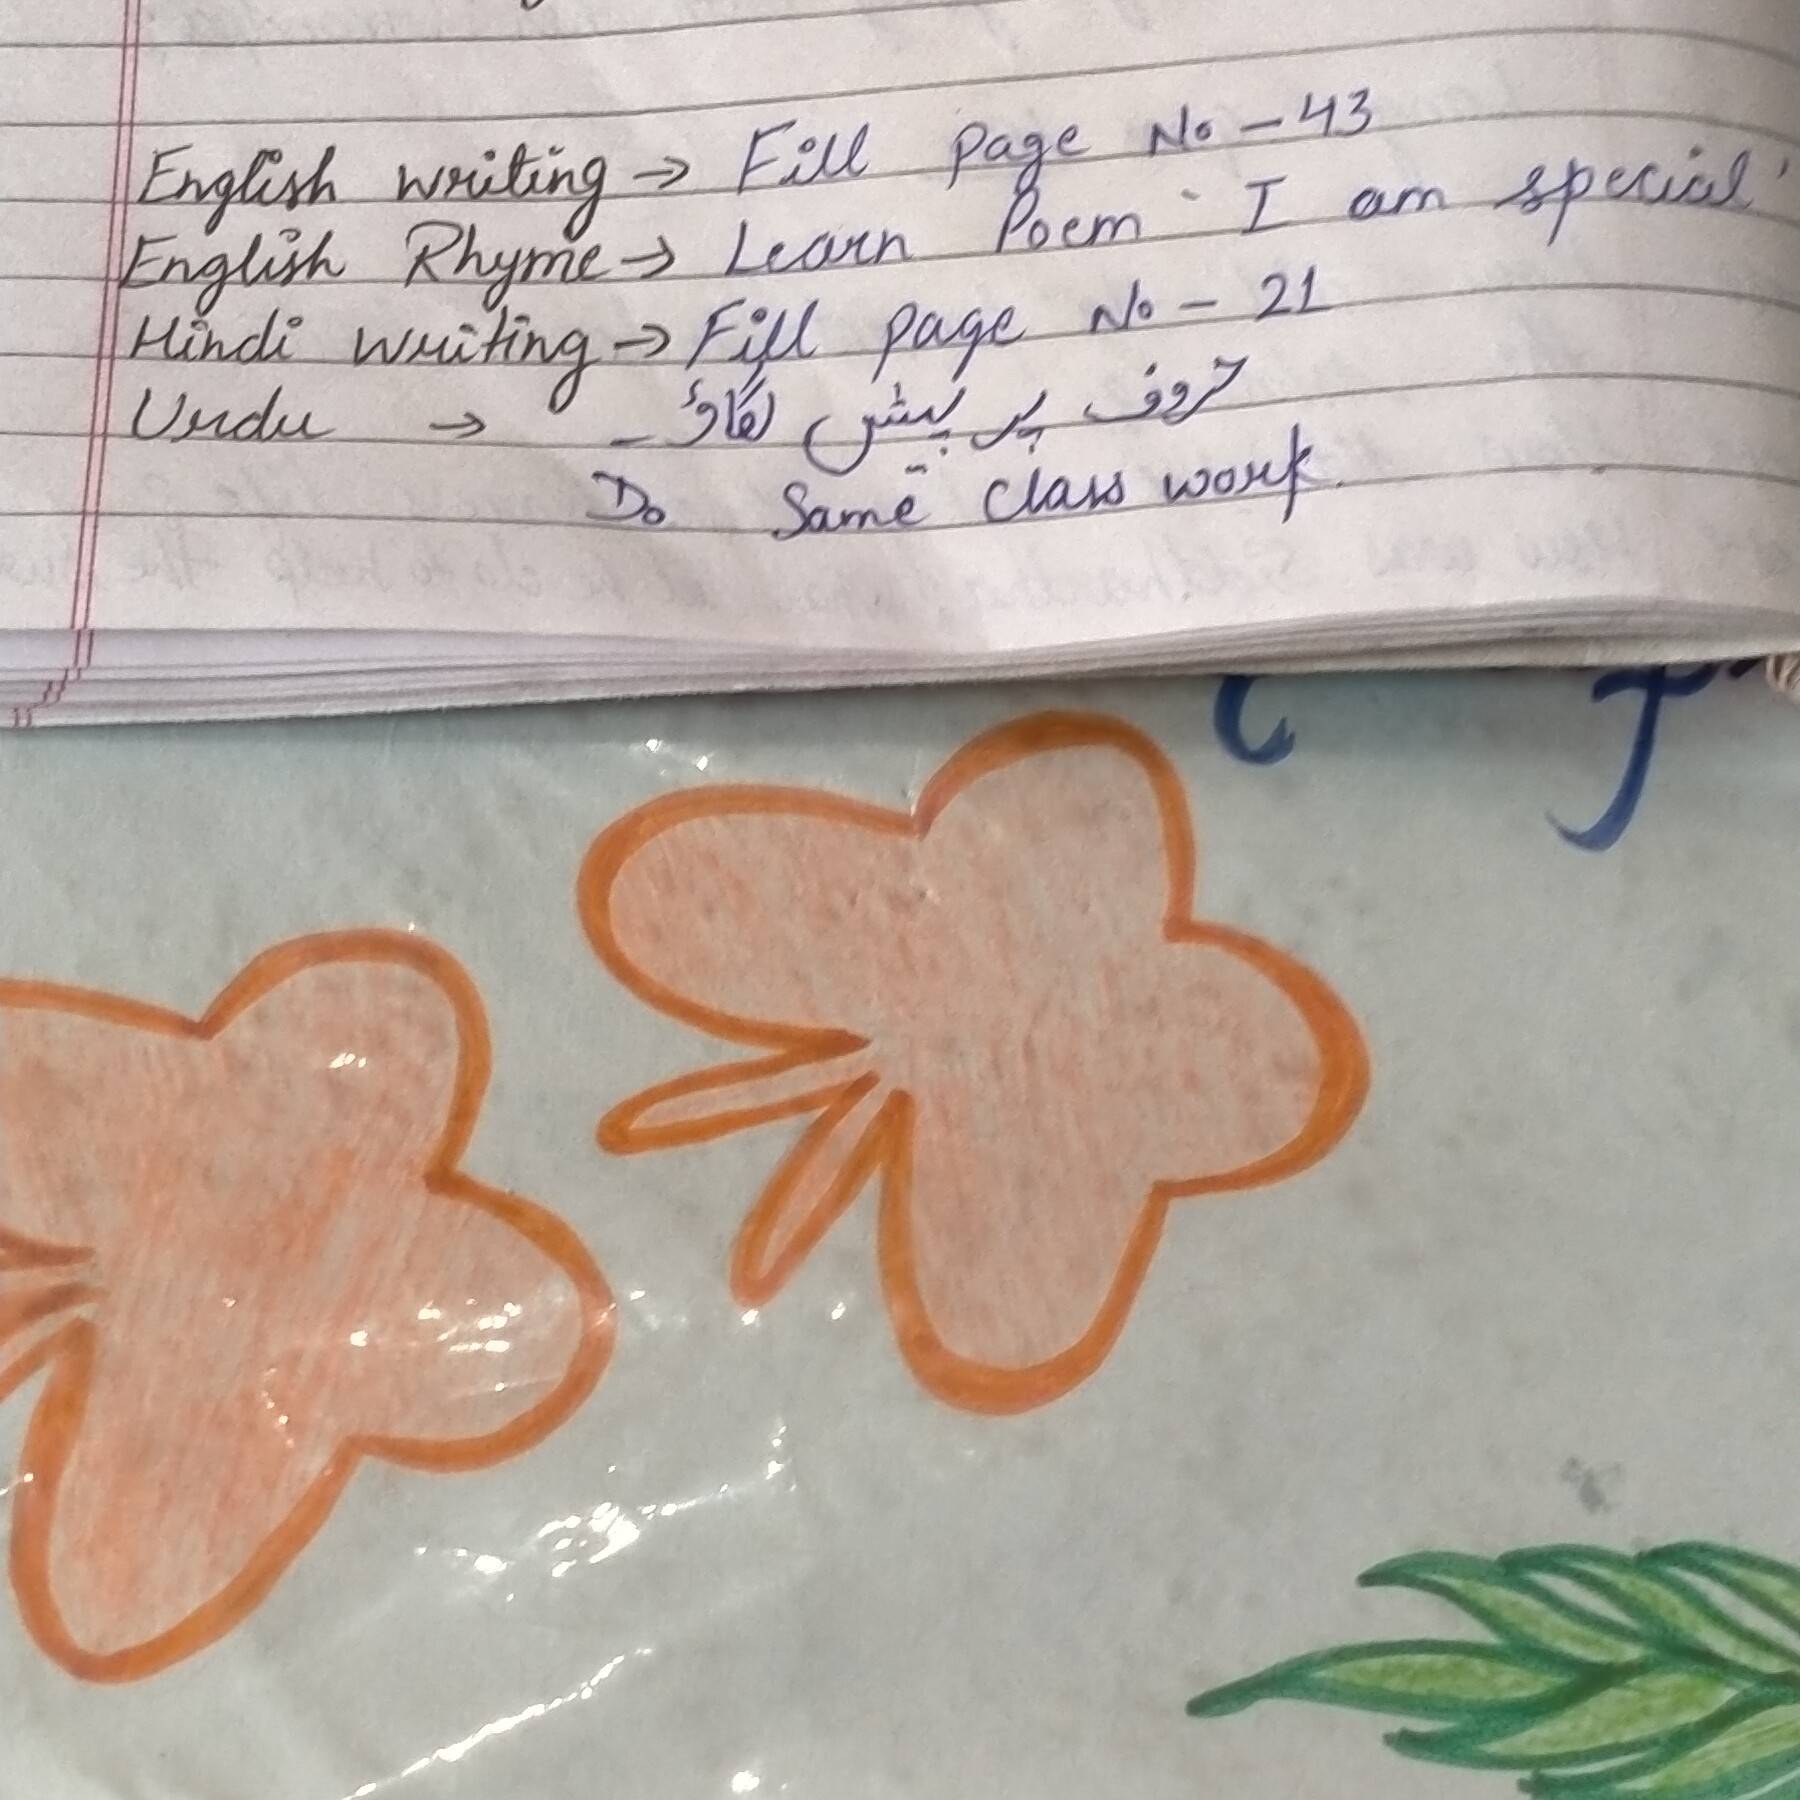 English writing → Fill page No - 43
English Rhyme → Learn Poem 'I am special'
Hindi writing → Fill page No - 21
Urdu → حروف پر پیش لگاؤ۔
Do Same Class work.